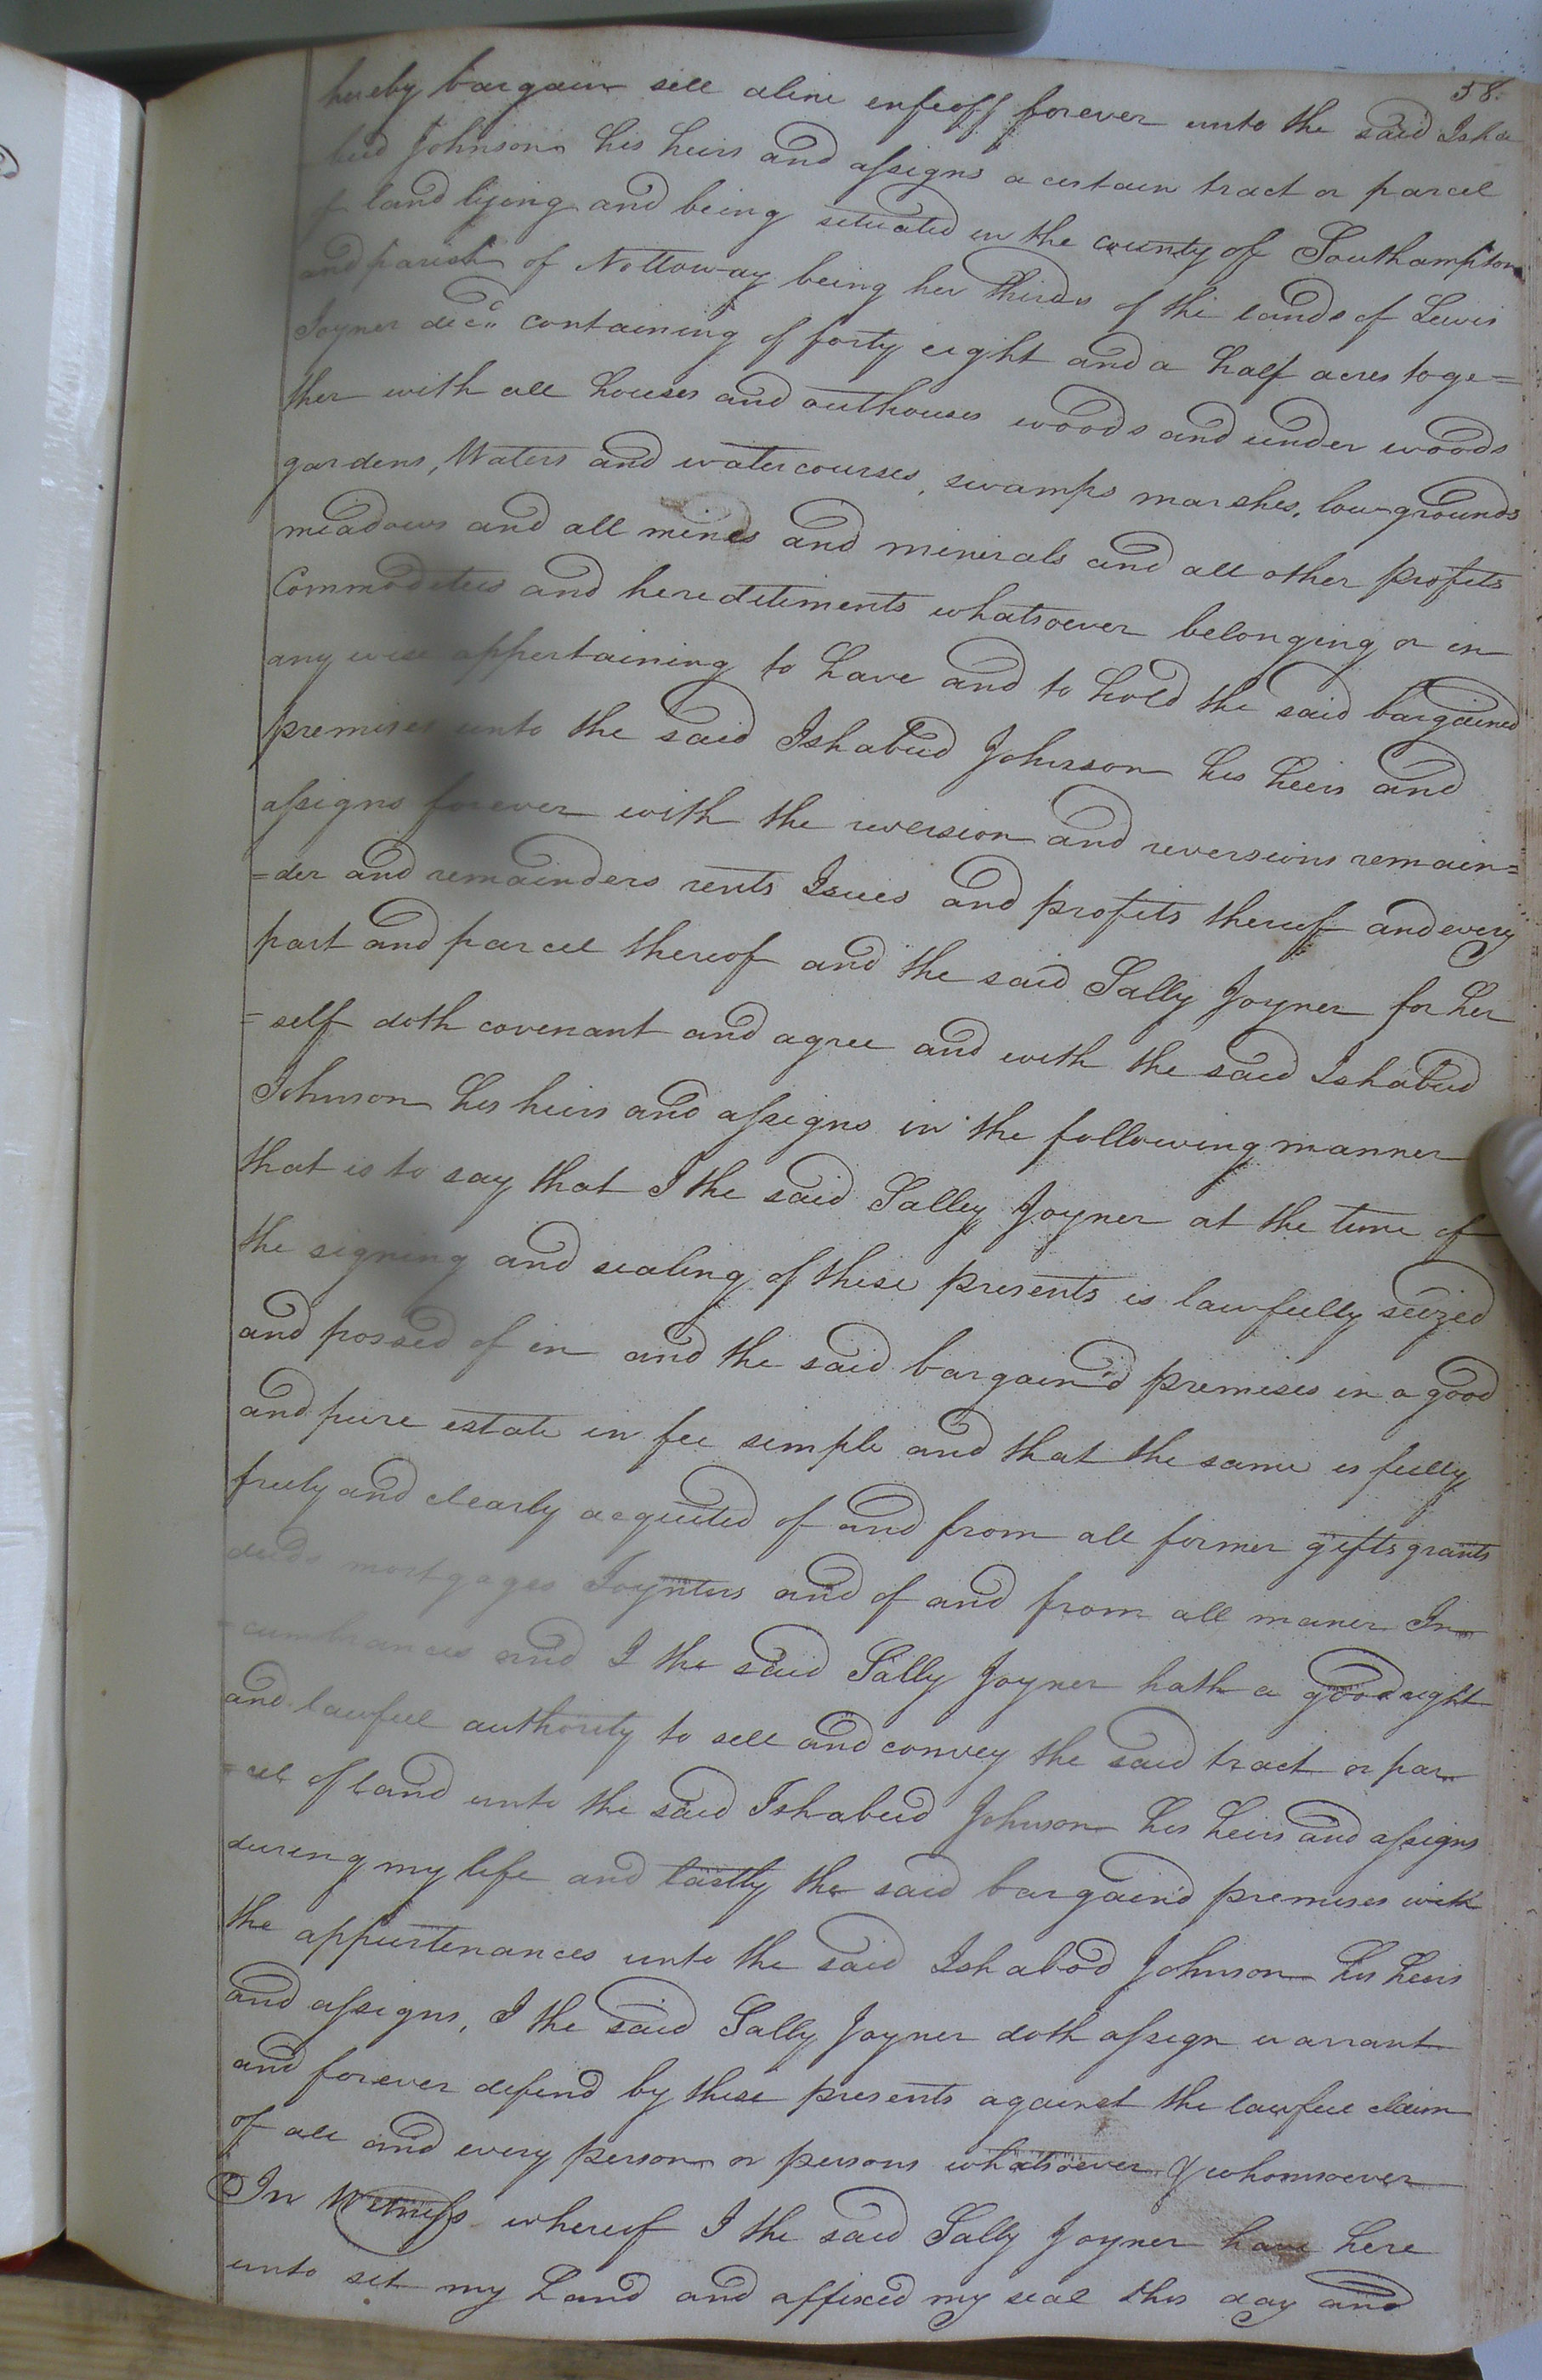 58.
hereby bargain sell aline enfeoff forever unto the said Isha
bud Johnson his heirs and assigns a certain tract or parcel
of land lijing and being situated in the county off Southampton
and parish of Nottoway being her thirds of the lands of Lewis
Joyner decd. containing of forty eight and a half acres toge=
ther with all houses and outhouses woods and under woods
gardens, Waters and watercourses, swamps marshes, low grounds
meadows and all mines and minerals and all other profits
Commodeties and hereditiments whatsoever belonging or in
any wise appertaining to have and to hold the said bargained
premises unto the said Ishabud Johnson his heirs and
assigns forever with the reversion and reversions remain=
=der and remainders rents Isues and profits thereof and every
part and parcel thereof and the said Sally Joyner for her
=self doth covenant and agree and with the said Ishabud
Johnson his heirs and assigns in the following manner
that is to say that I the said Salley Joyner at the time of
the signing and sealing of these presents is lawfully seized
and possed of in and the said bargain'd premises in a good
and pure estate in fee simple and that the same is fully
freely and clearly acquited of and from all former gifts grants
deeds mortgages Joynters and of and from all maner In
=cumbrances and I the said Sally Joyner hath a good right
and lawfull authority to sell and convey the said tract or par
=cel of land unto the said Ishabud Johnson his heirs and assigns
during my life and lastly the said bargain'd premises with
the appurtenances unto the said Ishabod Johnson his heirs
and assigns, I the said Sally Joyner doth assign warrant
and forever defend by these presents against the lawfull claim
of all and every person or persons whatsoever & whomsoever
In Witness whereof I the said Sally Joyner have here
unto set my hand and affixed my seal this day and